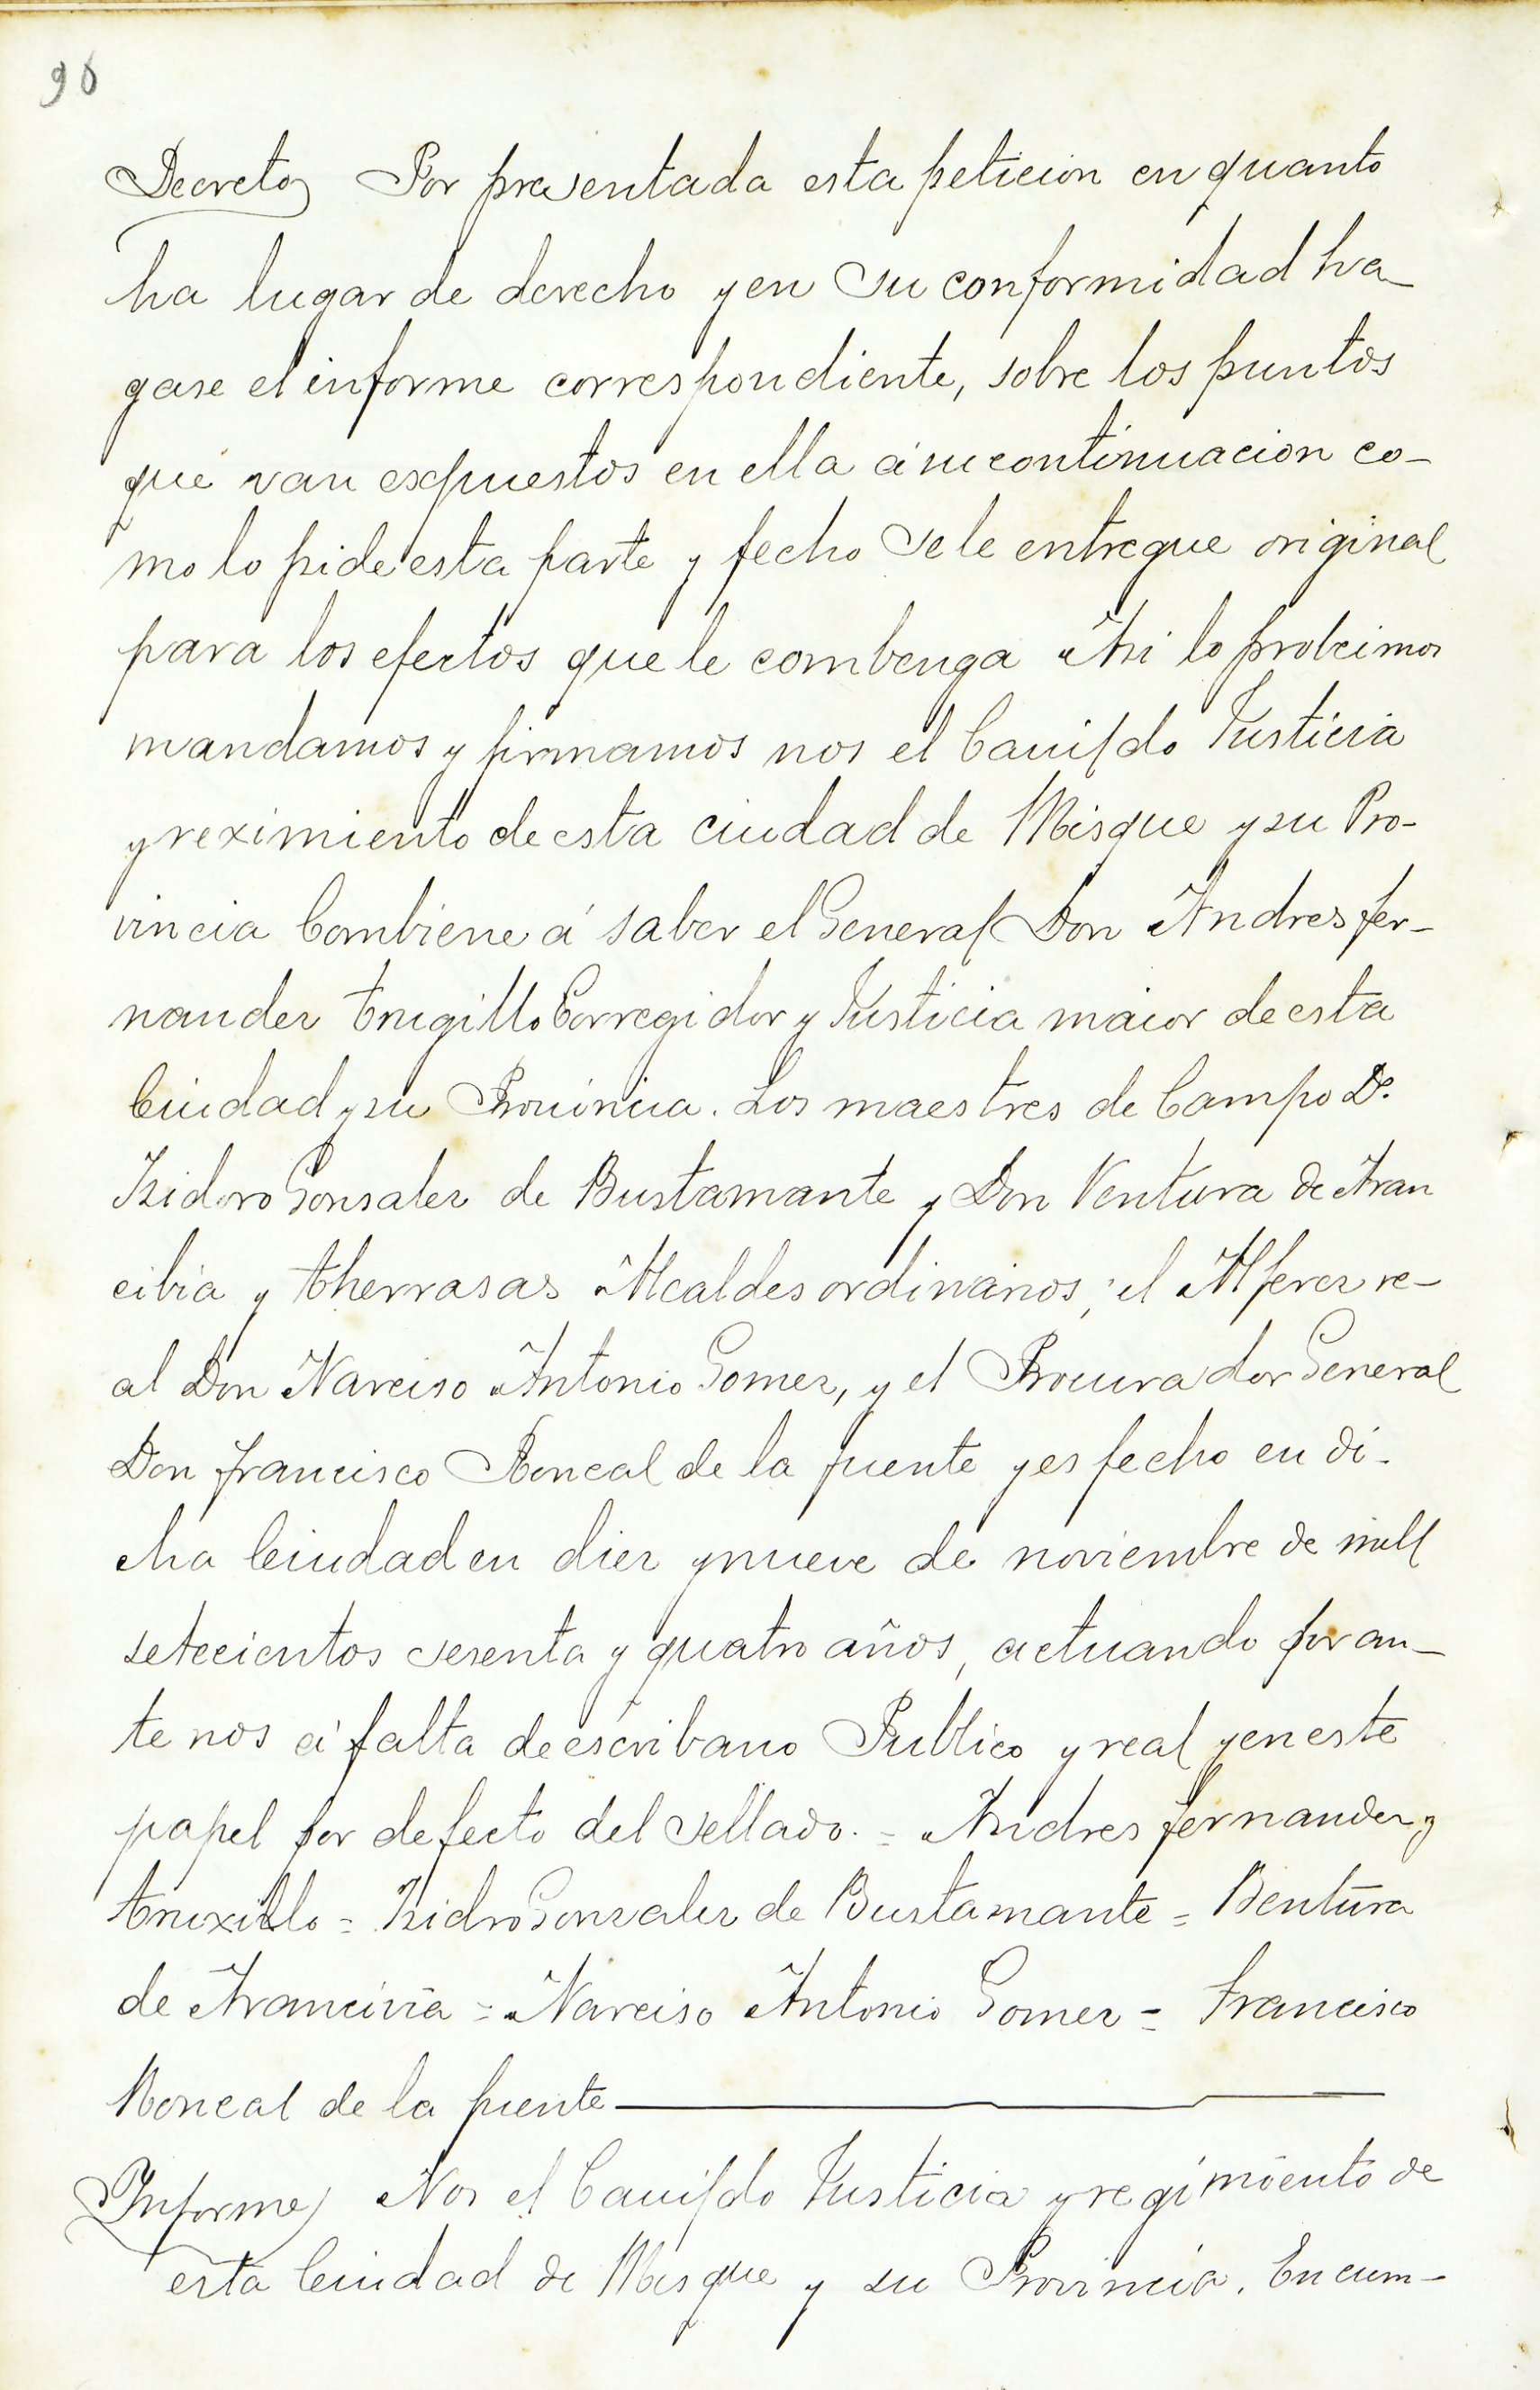 96
Decreto Por presentada esta peticion en quanto
ha lugar de derecho y en su conformidad ha_
gase el informe correspondiente, sobre los puntos
que van expuestos en ella á su continuacion co-
mo lo pide esta parte y fecho se le entregue original
para los efectos que le combenga Asi lo probeimos
mandamos y firmamos nos el Cauildo Justicia
y reximiento de esta ciudad de Misque y su Pro-
vincia Combiene á saber el General Don Andres fer-
nandez trugillo Corregidor y Justicia maior de esta
Ciudad y su Prouincia. Los maestres de Campo Dn.
Isidoro Gonsalez de Bustamante y Don Ventura de Aran
cibia y therrasas Alcaldes ordinarios, el Alferez re-
al Don Narciso Antonio Gomez, y el Procurador General
Don francisco Roncal de la fuente y es fecho en di-
cha Ciudad en diez y nueve de noviembre de mill
setecientos sesenta y quatro años, actuando por an-
te nos á falta de escribano Publico y real y en este
papel por defecto del sellado. = Andres fernandez
truxillo = Isidro Gonzalez de Bustamante = Bentura
de Arancivia = Narciso Antonio Gomez = Francisco
Roncal de la fuente
Informe Nos el Cauildo Justicia y regimiento de
esta Ciudad de Misque y su Provincia. En cum-